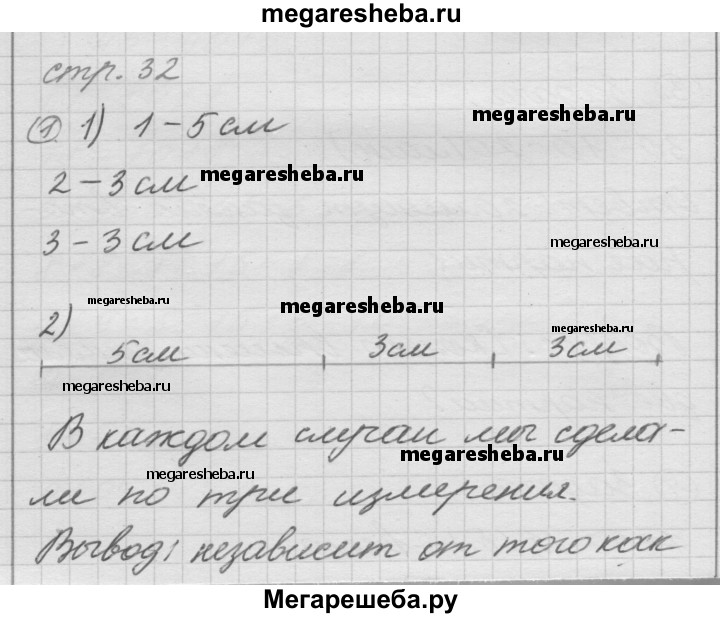 megaresheba.ru
стр. 32
megaresheba.ru
1. 1) 1 – 5 см
2 – 3 см megaresheba.ru
3 – 3 см
megaresheba.ru
megaresheba.ru
megaresheba.ru
megaresheba.ru
2)
5 см 3 см 3 см
megaresheba.ru
megaresheba.ru
В каждом случаи мы сдела-
megaresheba.ru
megaresheba.ru
ли по три измерения.
Вывод: независит от того как
Мегарешеба.ру